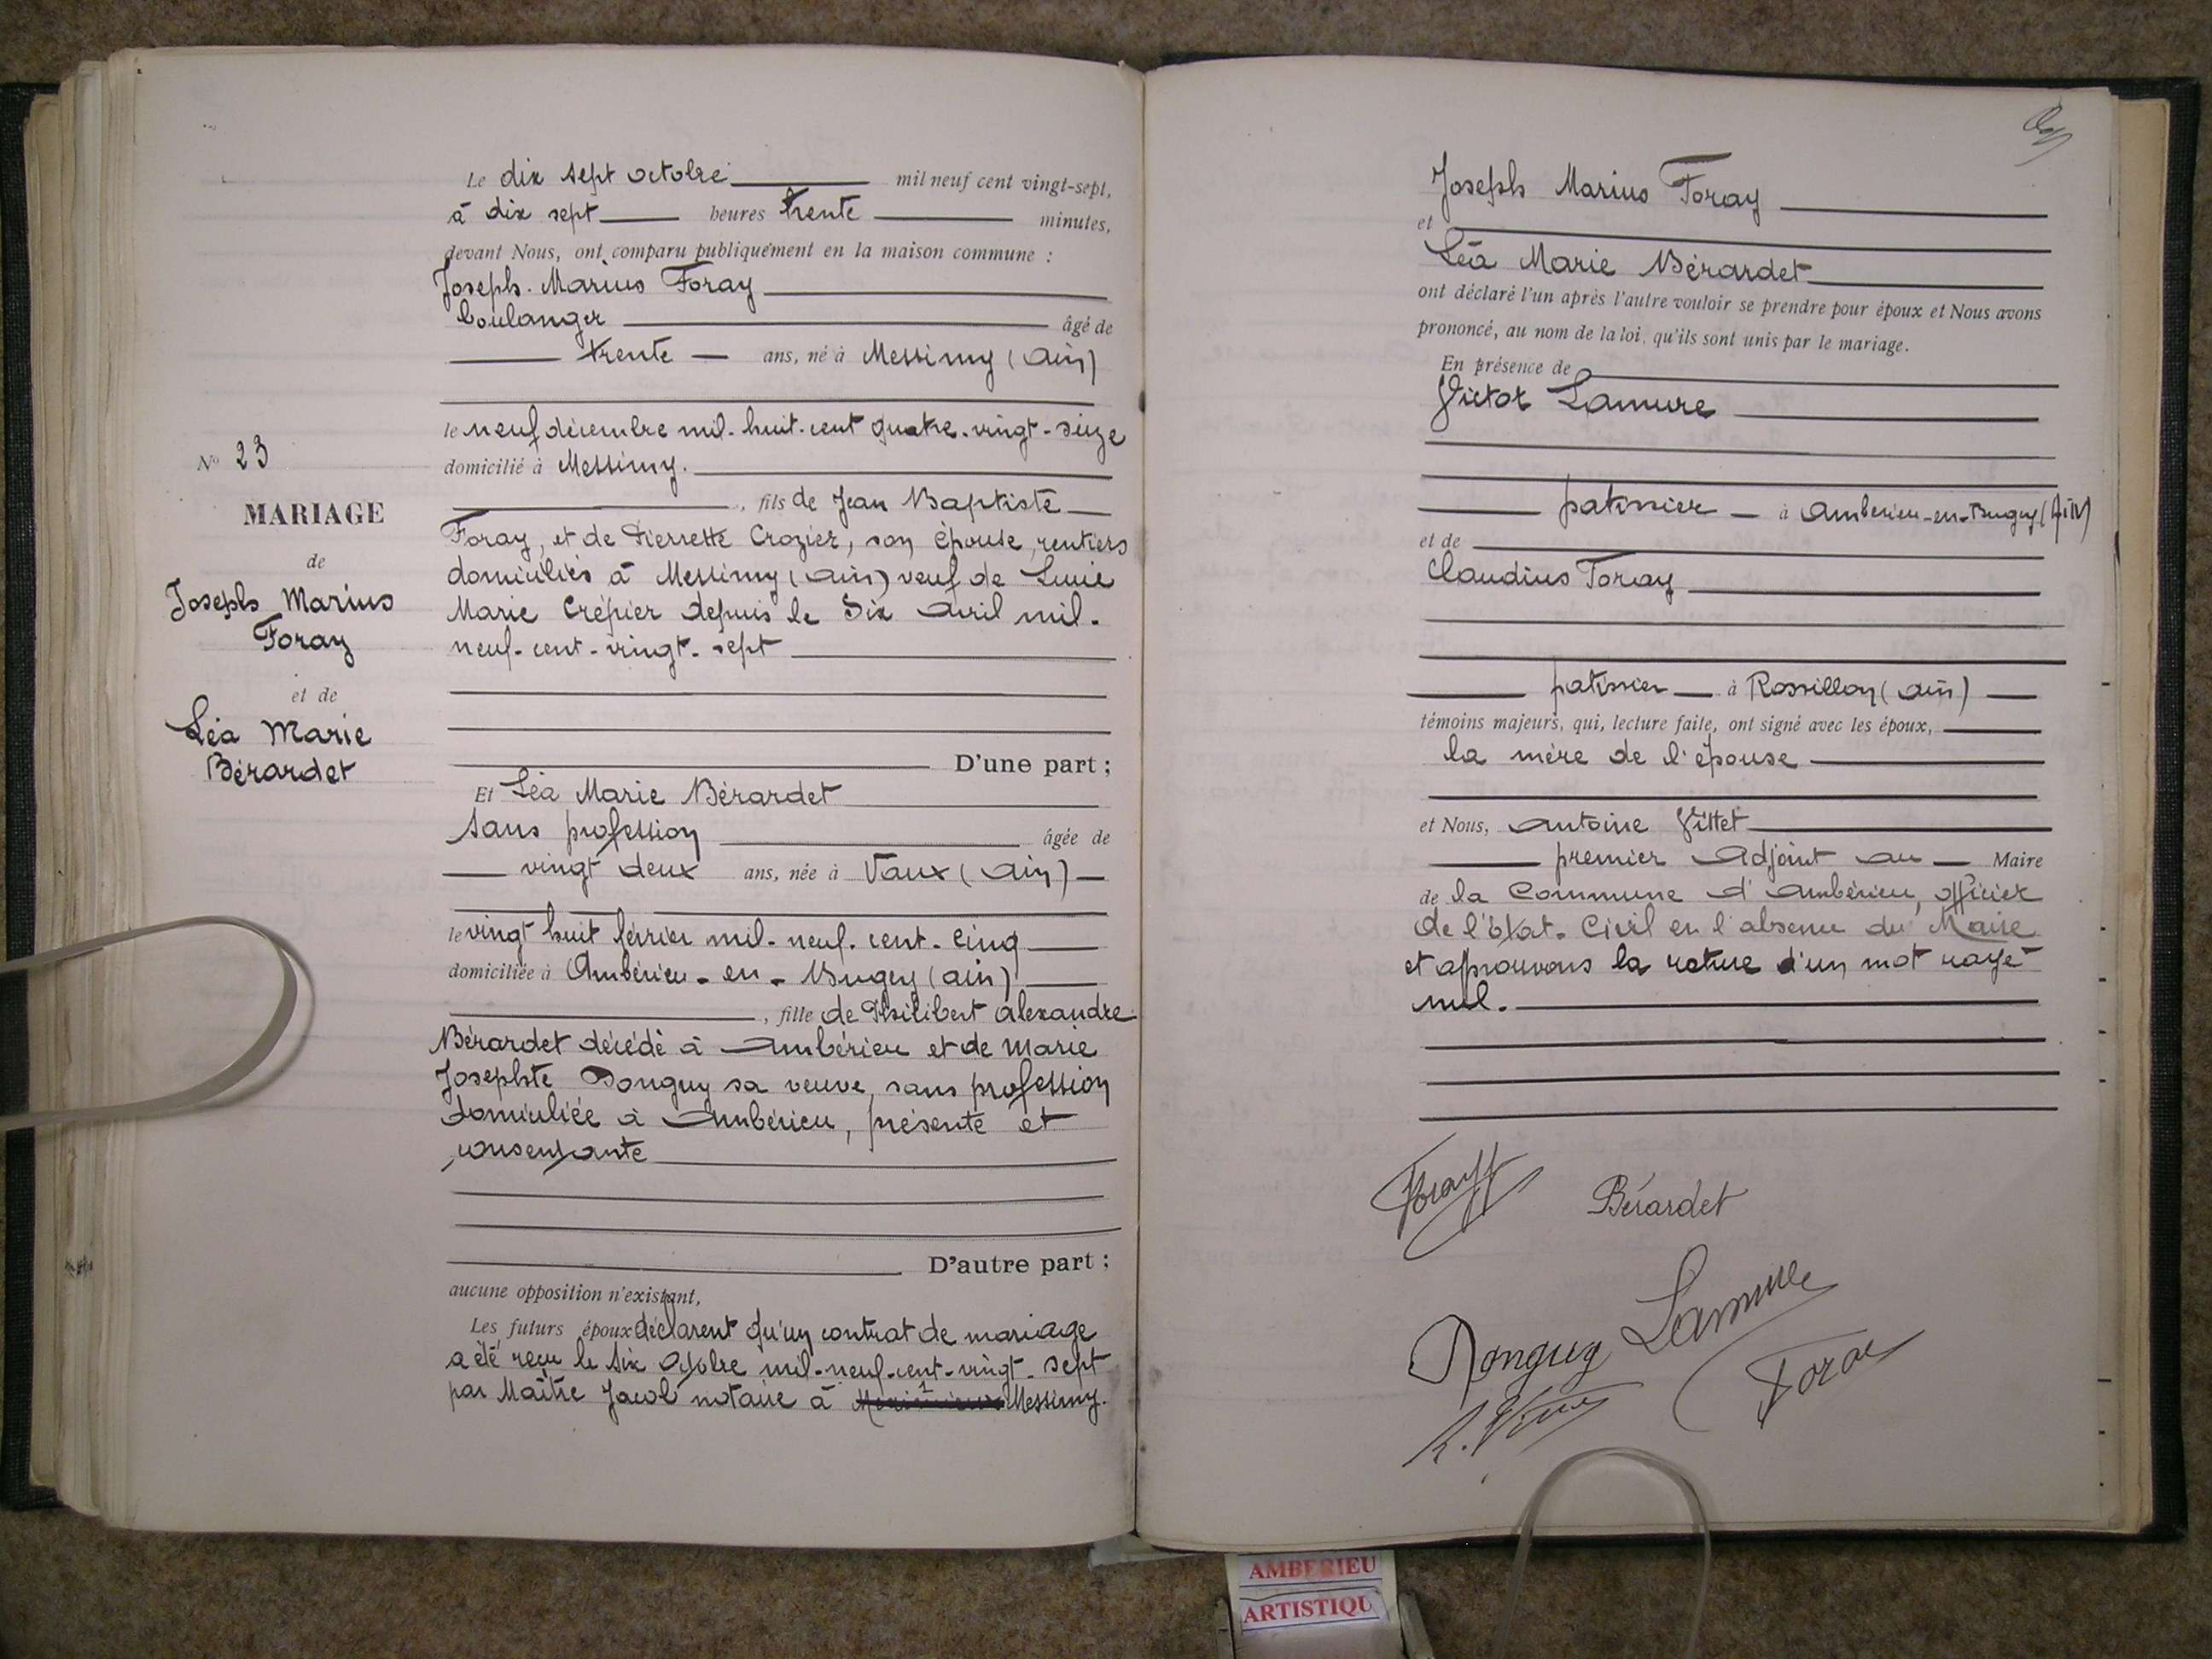 Le dix sept octobre mil neuf cent vingt-sept,
à dix sept heures trente minutes,
devant Nous, ont comparu publiquement en la maison commune :
Joseph. Marius Foray
boulanger âgé de
trente ans, né à Messimy (Ain)
le neuf décembre mil-huit-cent quatre-vingt-seize
domicilié à Messimy.
, fils de Jean Baptiste
Foray, et de Pierrette Crozier, son épouse, rentiers
domiciliés à Messimy (Ain) veuf de Lucie
Marie Crépier depuis le Six Avril mil-
neuf-cent-vingt-sept
D'une part ;
Et Léa Marie Bérardet
sans profession âgée de
vingt deux ans, née à Vaux (Ain)
le vingt huit février mil-neuf-cent-cinq
domiciliée à Ambérieu-en-Bugey (Ain)
, fille de Philibert Alexandre
Bérardet décédé à Ambérieu et de Marie
Josephte Donguy sa veuve, sans profession
domiciliée à Ambérieu, présente et
consentante
D'autre part ;
aucune opposition n'existant,
Les futurs époux déclarent qu'un contrat de mariage
a été reçu le six Octobre mil-neuf-cent-vingt-sept
par Maître Jacob notaire à Messimy.
N° 23
MARIAGE
de
Joseph Marius
Foray
et de
Léa Marie
Bérardet
Joseph Marius Foray
et
Léa Marie Bérardet
ont déclaré l'un après l'autre vouloir se prendre pour époux et Nous avons
prononcé, au nom de la loi, qu'ils sont unis par le mariage.
En présence de
Victor Lamure
patissier à Amberieu-en-Bugey (Ain)
et de
Claudius Foray
patissier à Rossillon (Ain)
témoins majeurs, qui, lecture faite, ont signé avec les époux,
la mère de l'épouse
et Nous, Antoine Vittet
premier Adjoint au Maire
de la Commune d'Ambérieu, officier
de l'état-Civil en l'absence du Maire
et aprouvons la rature d'un mot rayé
nul.
Foray
Bérardet
Donguy Lamure
Foray
AMBERIEU
ARTISTIQU